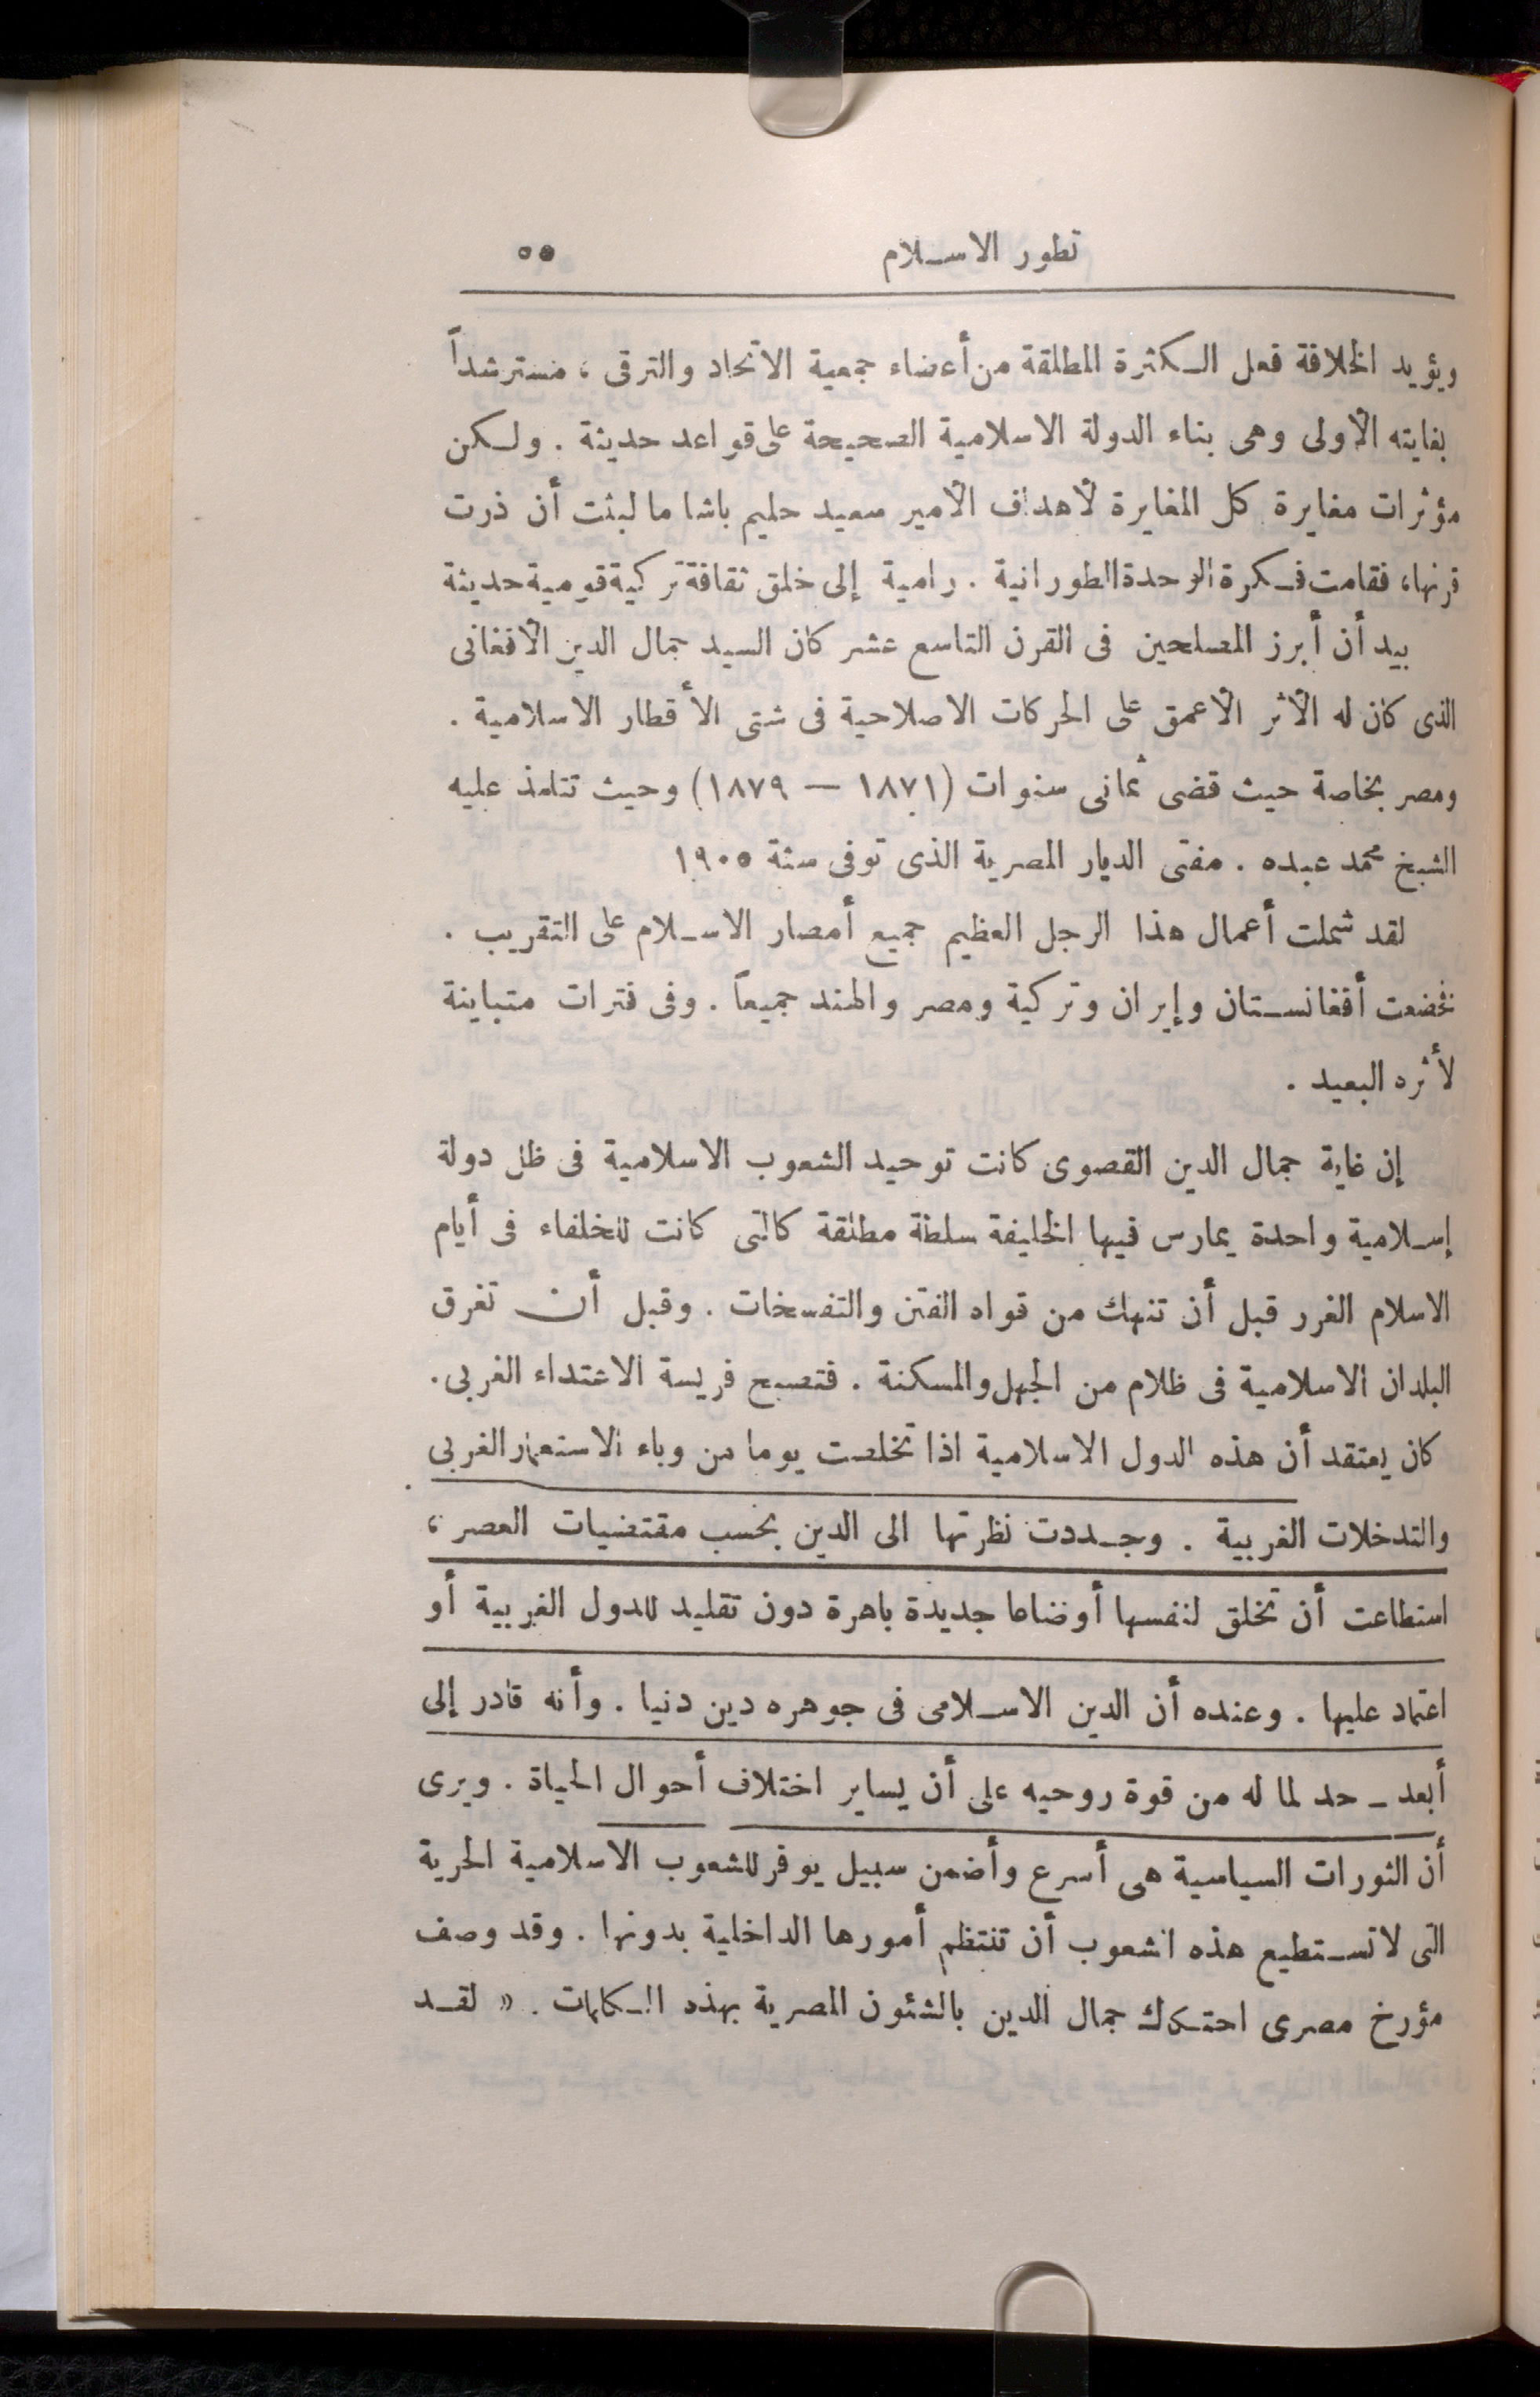 تطور الاسلام ٥٥
ويؤيد الخلافة فعل الكثرة المطلقة من أعضاء جمعية الاتحاد والترقى ، مسترشداً
بغايته الأولى وهى بناء الدولة الاسلامية الصحيحة على قواعد حديثة . ولكن
مؤثرات مغايرة كل المغايرة لأهداف الأمير سعيد حليم باشا ما لبثت أن ذرت
قرنها، فقامت فكرة الوحدة الطورانية . رامية إلى خلق ثقافة تركية قومية حديثة
بيد أن أبرز المصلحين فى القرن التاسع عشر كان السيد جمال الدين الأفغانى
الذى كان له الأثر الأعمق على الحركات الاصلاحية فى شتى الأقطار الاسلامية .
ومصر بخاصة حيث قضى ثمانى سنوات (١٨٧١ — ١٨٧٩) وحيث تتلمذ عليه
الشيخ محمد عبده . مفتى الديار المصرية الذى توفى سنة ١٩٠٥
لقد شملت أعمال هذا الرجل العظيم جميع أمصار الاسلام على التقريب .
فخضعت أفغانستان وإيران وتركية ومصر والهند جميعاً . وفى فترات متباينة
لأثره البعيد .
إن غاية جمال الدين القصوى كانت توحيد الشعوب الاسلامية فى ظل دولة
إسلامية واحدة يمارس فيها الخليفة سلطة مطلقة كالتى كانت للخلفاء فى أيام
الاسلام الغرر قبل أن تنهك من قواه الفتن والتفسخات . وقبل أن تغرق
البلدان الاسلامية فى ظلام من الجهل والمسكنة . فتصبح فريسة الاعتداء الغربى .
كان يعتقد أن هذه الدول الاسلامية اذا تخلصت يوما من وباء الاستعمار الغربى
والتدخلات الغربية . وجددت نظرتها الى الدين بحسب مقتضيات العصر ،
استطاعت أن تخلق لنفسها أوضاعا جديدة باهرة دون تقليد للدول الغربية أو
اعتماد عليها . وعنده أن الدين الاسلامى فى جوهره دين دنيا . وأنه قادر إلى
أبعد ـ حد لما له من قوة روحيه على أن يساير اختلاف أحوال الحياة . ويرى
أن الثورات السياسية هى أسرع وأضمن سبيل يوفر للشعوب الاسلامية الحرية
التى لا تستطيع هذه الشعوب أن تنتظم أمورها الداخلية بدونها . وقد وصف
مؤرخ مصرى احتكاك جمال الدين بالشئون المصرية بهذه الكلمات . « لقد